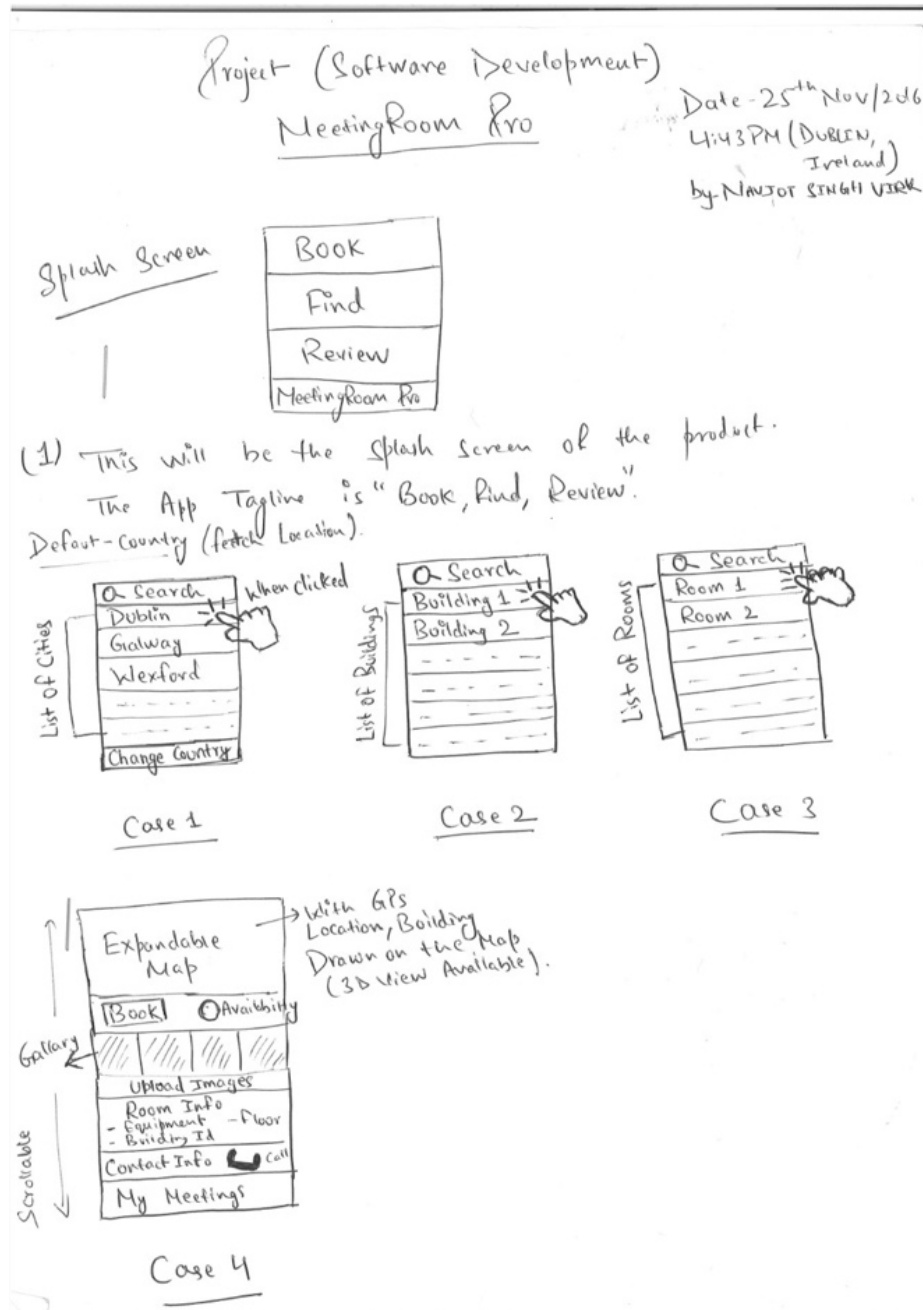 Project (Software Development)
MeetingRoom Pro
Date - 25th Nov/2016
4:43PM (DUBLIN,
Ireland)
by- NAVJOT SINGH VIRK
Splash Screen
Book
Find
Review
MeetingRoom Pro
(1) This will be the Splash Screen of the product.
The App Tagline is "Book, Find, Review".
Defaut-Country (fetch Location).
Search
Dublin
Galway
Wexford
Change Country
List of Cities
When clicked
Case 1
Search
Building 1
Building 2
List of Buildings
Case 2
Search
Room 1
Room 2
List of Rooms
Case 3
Expandable
Map
With GPS
Location, Building
Drawn on the Map
(3D View Available).
Book Availbility
Gallary
Upload Images
Room Info
- Equipment - Floor
- Building Id
Contact Info Call
My Meetings
Scrollable
Case 4